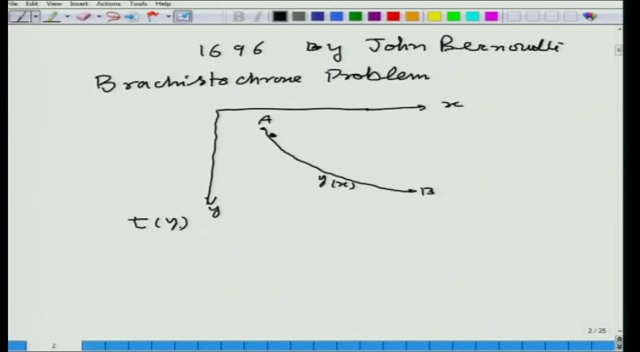 File Edit View Insert Actions Tools Help
1696 By John Bernoulli
Brachistochrone Problem
x
A
y(x) B
y
t(y)
2 / 25
2